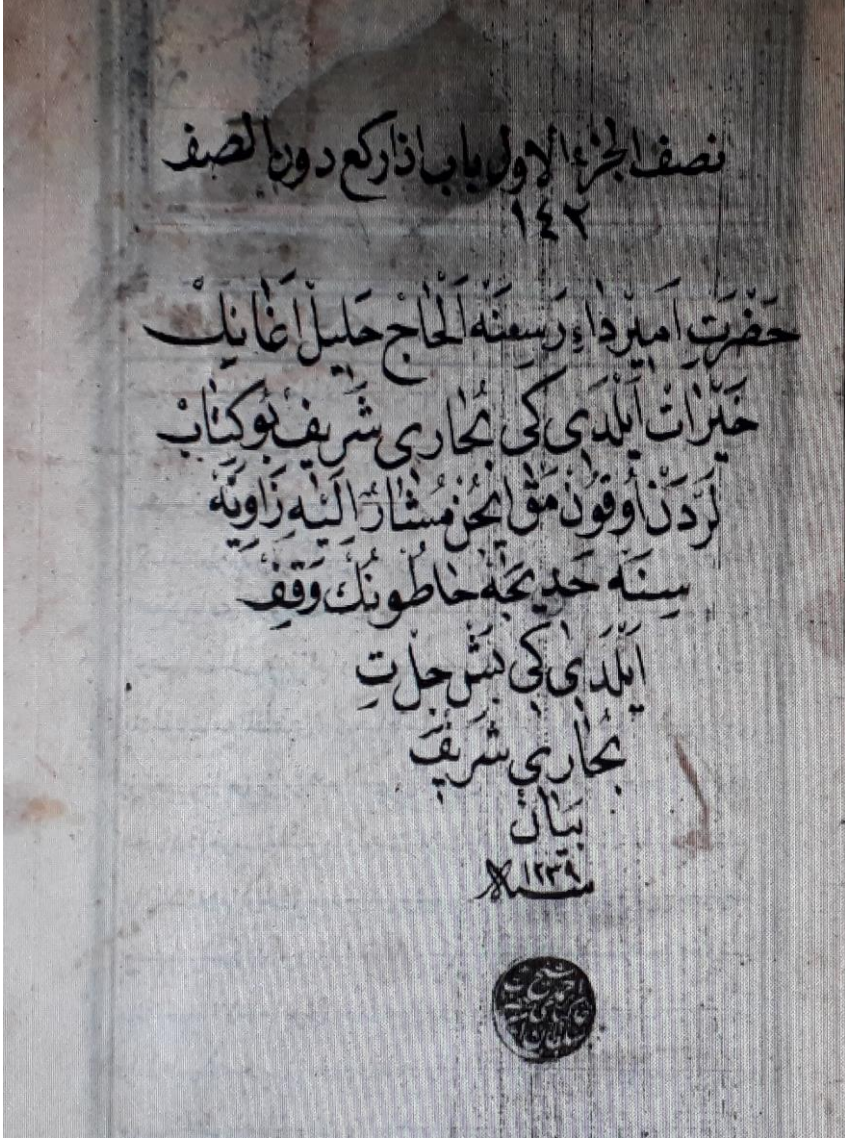 نصف الجزء الاول باب اذا ركع دون الصف
١٤٢
حَضْرَتِ اَمِيرْ دٰاءِ رَسِنَه اَلْحٰاجْ خَلِيلْ اَغٰانِڭْ
خَيْرٰاتْ اَيْلَدِى كِى بُخٰارِى شَرِيفْ بُو كِتٰابْ
لَرْدَنْ اُوقُونْمَقْ اِيچُنْ مُشٰارٌ اِلَيْهِ زَاوِيَه
سِنَه خَدِيجَه خٰاطُونُڭْ وَقِفْ
اَيْلَدِى كِى بَشْ جِلْتِ
بُخٰارِى شَرِيفْ
بَيٰانْ
سنه ١٢٣٩